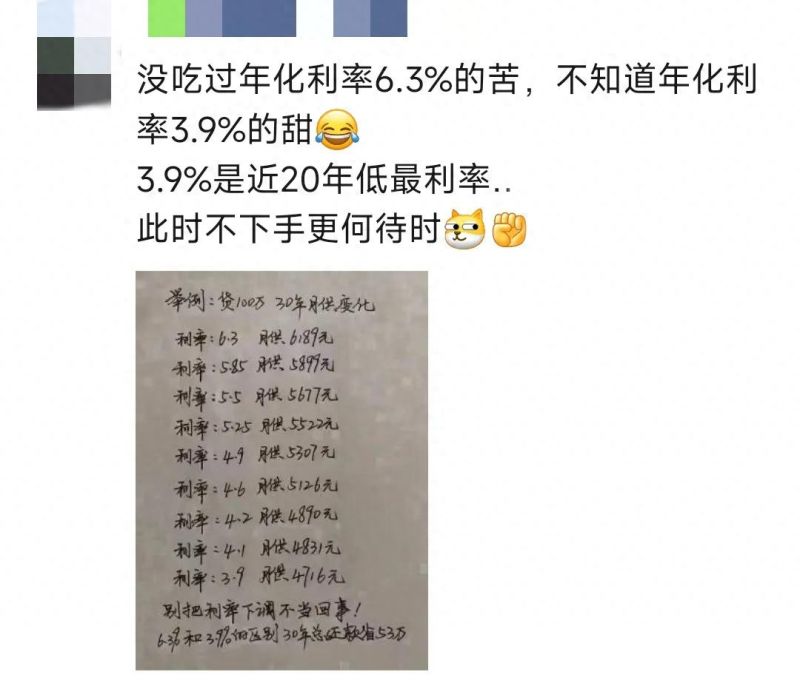 没吃过年化利率6.3%的苦，不知道年化利
率3.9%的甜😂
3.9%是近20年低最利率..
此时不下手更何待时
举例：贷100万 30年月供变化
利率：6.3 月供6189元
利率：5.85 月供5899元
利率：5.5 月供5677元
利率：5.25 月供5522元
利率：4.9 月供5307元
利率：4.6 月供5126元
利率：4.2 月供4890元
利率：4.1 月供4831元
利率：3.9 月供4716元
别把利率下调不当回事！
6.3%和3.9%的区别 30年总还款省53万